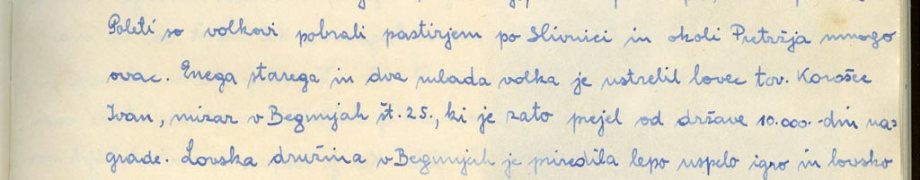 Poleti so volkovi pobrali pastirjem po Slivnici in okoli Pretržja mnogo
ovac. Enega starega in dva mlada volka je ustrelil lovec tov. Korošec
Ivan, mizar v Begunjah št. 25., ki je zato prejel od države 10.000.-din na=
grade. Lovska družina v Begunjah je priredila lepo uspelo igro in lovsko